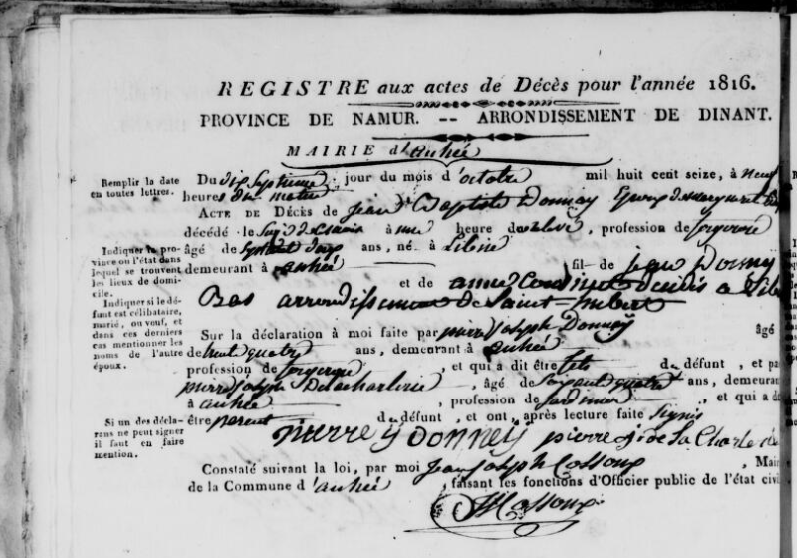 REGISTRE aux actes de Décès pour l'année 1816.
PROVINCE DE NAMUR. -- ARRONDISSEMENT DE DINANT.
MAIRIE d'anhée
Remplir la date
en toutes lettres.
Du dix Septieme jour du mois d'octobre mil huit cent seize, à neuf
heures du matin
ACTE DE Décès de jean Baptiste Donnay Epoux de
décédé le à une heure de , profession de
Indiquer la pro-
vince ou l'état dans
lequel se trouvent
les lieux de domi-
cile.
âgé de ans, né à Libin
demeurant à anhée fil de jean Donnay
et de anne décédés a
Bas arrondissement de Saint hubert
Indiquer si le dé-
funt est célibataire,
marié, ou veuf, et
dans ces derniers
cas mentionner les
noms de l'autre
époux.
Sur la déclaration à moi faite par pierre joseph Donnay âgé
de trent quatre ans, demeurant à anhée
profession de , et qui a dit être fils du défunt, et pa
pierre joseph Delacharlerie , âgé de Soixant quatre ans, demeurant
à anhée , profession de , et qui a d
Si un des décla-
rans ne peut signer
il faut en faire
mention.
être parent du défunt, et ont, après lecture faite Signés
pierre j Donney pierre j de la Charle
Constaté suivant la loi, par moi jean joseph Cossoux , Mair
de la Commune d'anhée , faisant les fonctions d'Officier public de l'état civi
Cossoux